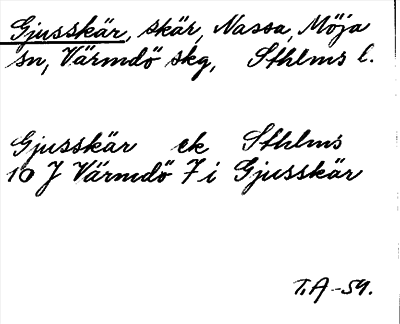 Gjusskär, skär, Nassa, Möja
sn, Värmdö skg, Sthlms l.
Gjusskär ek Sthlms
10 J Värmdö 7 i Gjusskär
T.A-59.